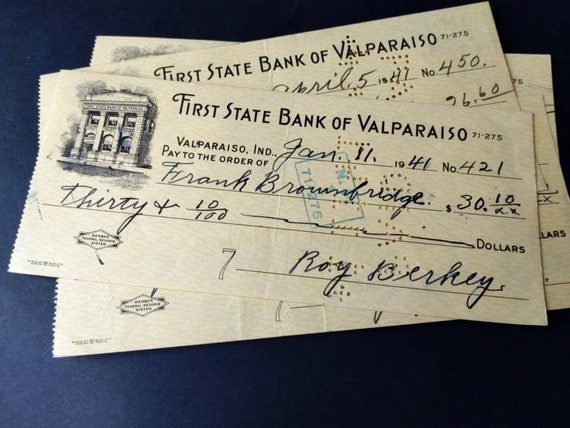 FIRST STATE BANK OF VALPARAISO 71-275
April 5 1941 No. 450.
26.60
FIRST STATE BANK OF VALPARAISO
FIRST STATE BANK OF VALPARAISO 71-275
VALPARAISO, IND., Jan. 11, 1941 No. 421
PAY TO THE ORDER OF Frank Brownbridge. $30. 10/xx
Thirty & 10/100 DOLLARS
MEMBER
FEDERAL RESERVE
SYSTEM
7 Roy Berkey.
MEMBER
FEDERAL RESERVE
SYSTEM